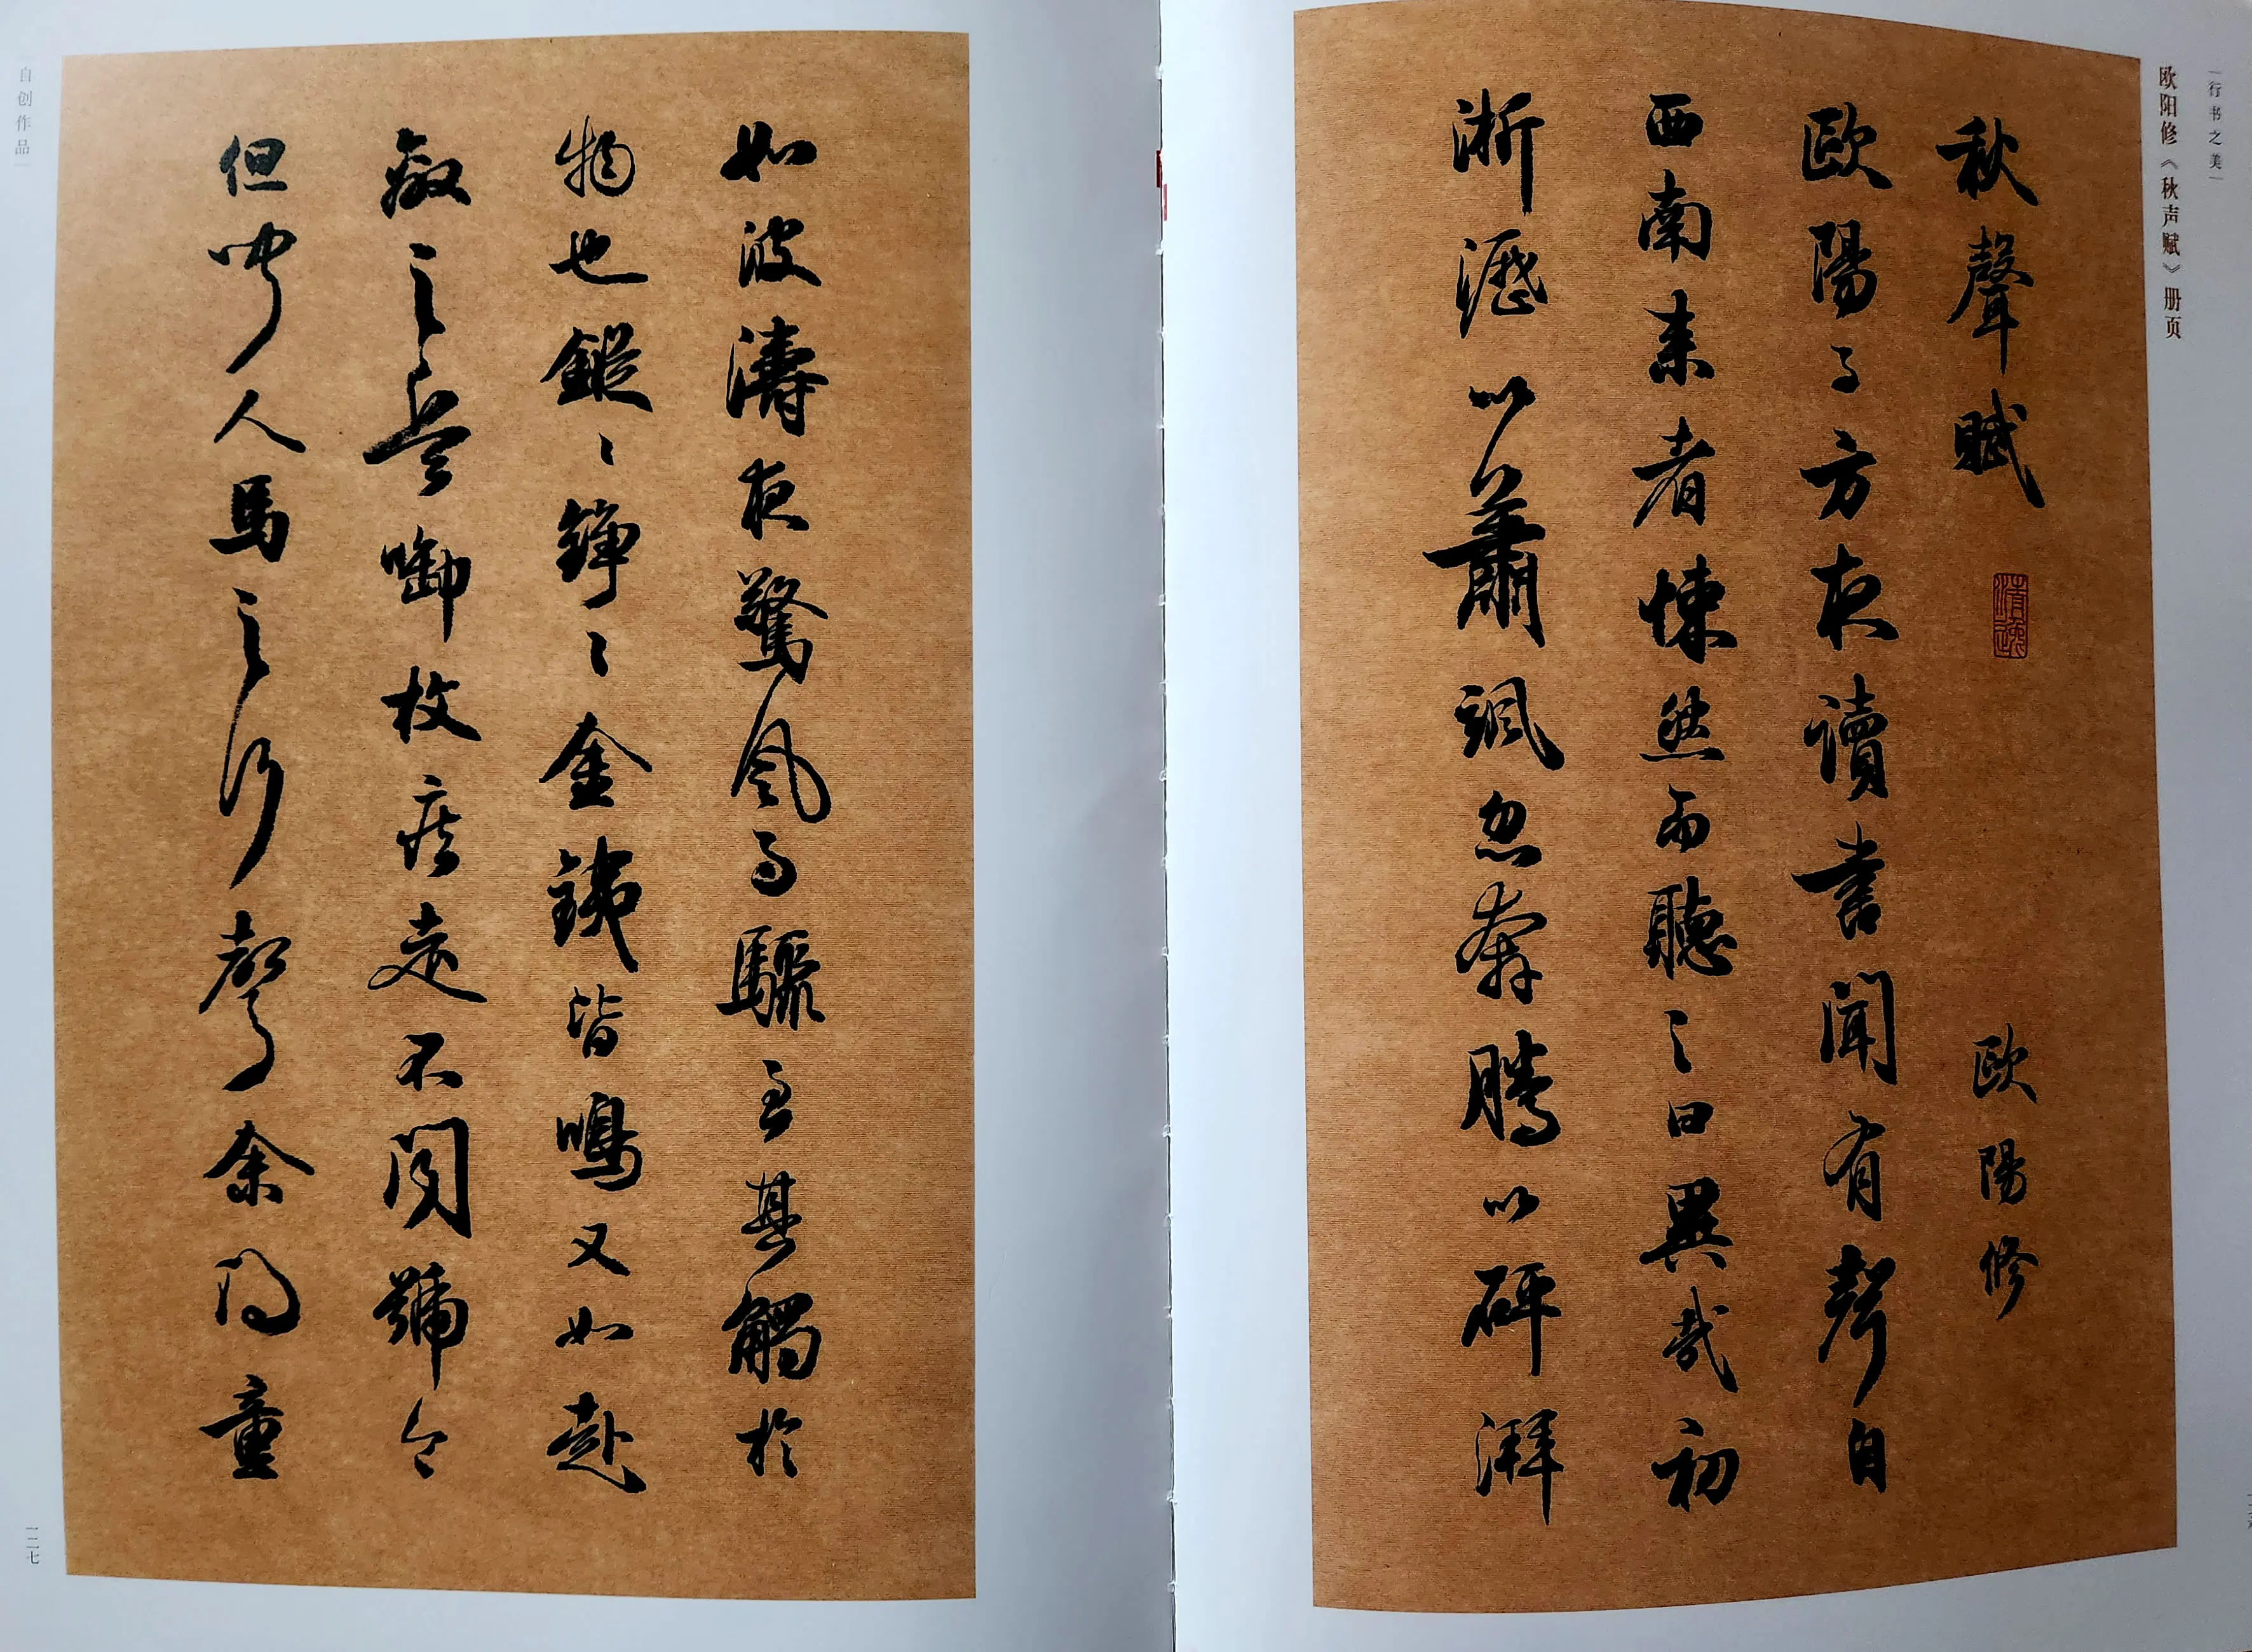 行书之美
欧阳修《秋声赋》册页
秋聲賦 清逸 歐陽修
歐陽子方夜讀書聞有聲自
西南来者悚然而聽之曰異哉初
淅瀝以蕭颯忽奔騰以砰湃
如波濤夜驚風雨驟至其觸於
物也鏦〻錚〻金銕皆鳴又如赴
敵之兵啣枚疾走不聞號令
但聞人馬之行聲余謂童
自创作品
一二七